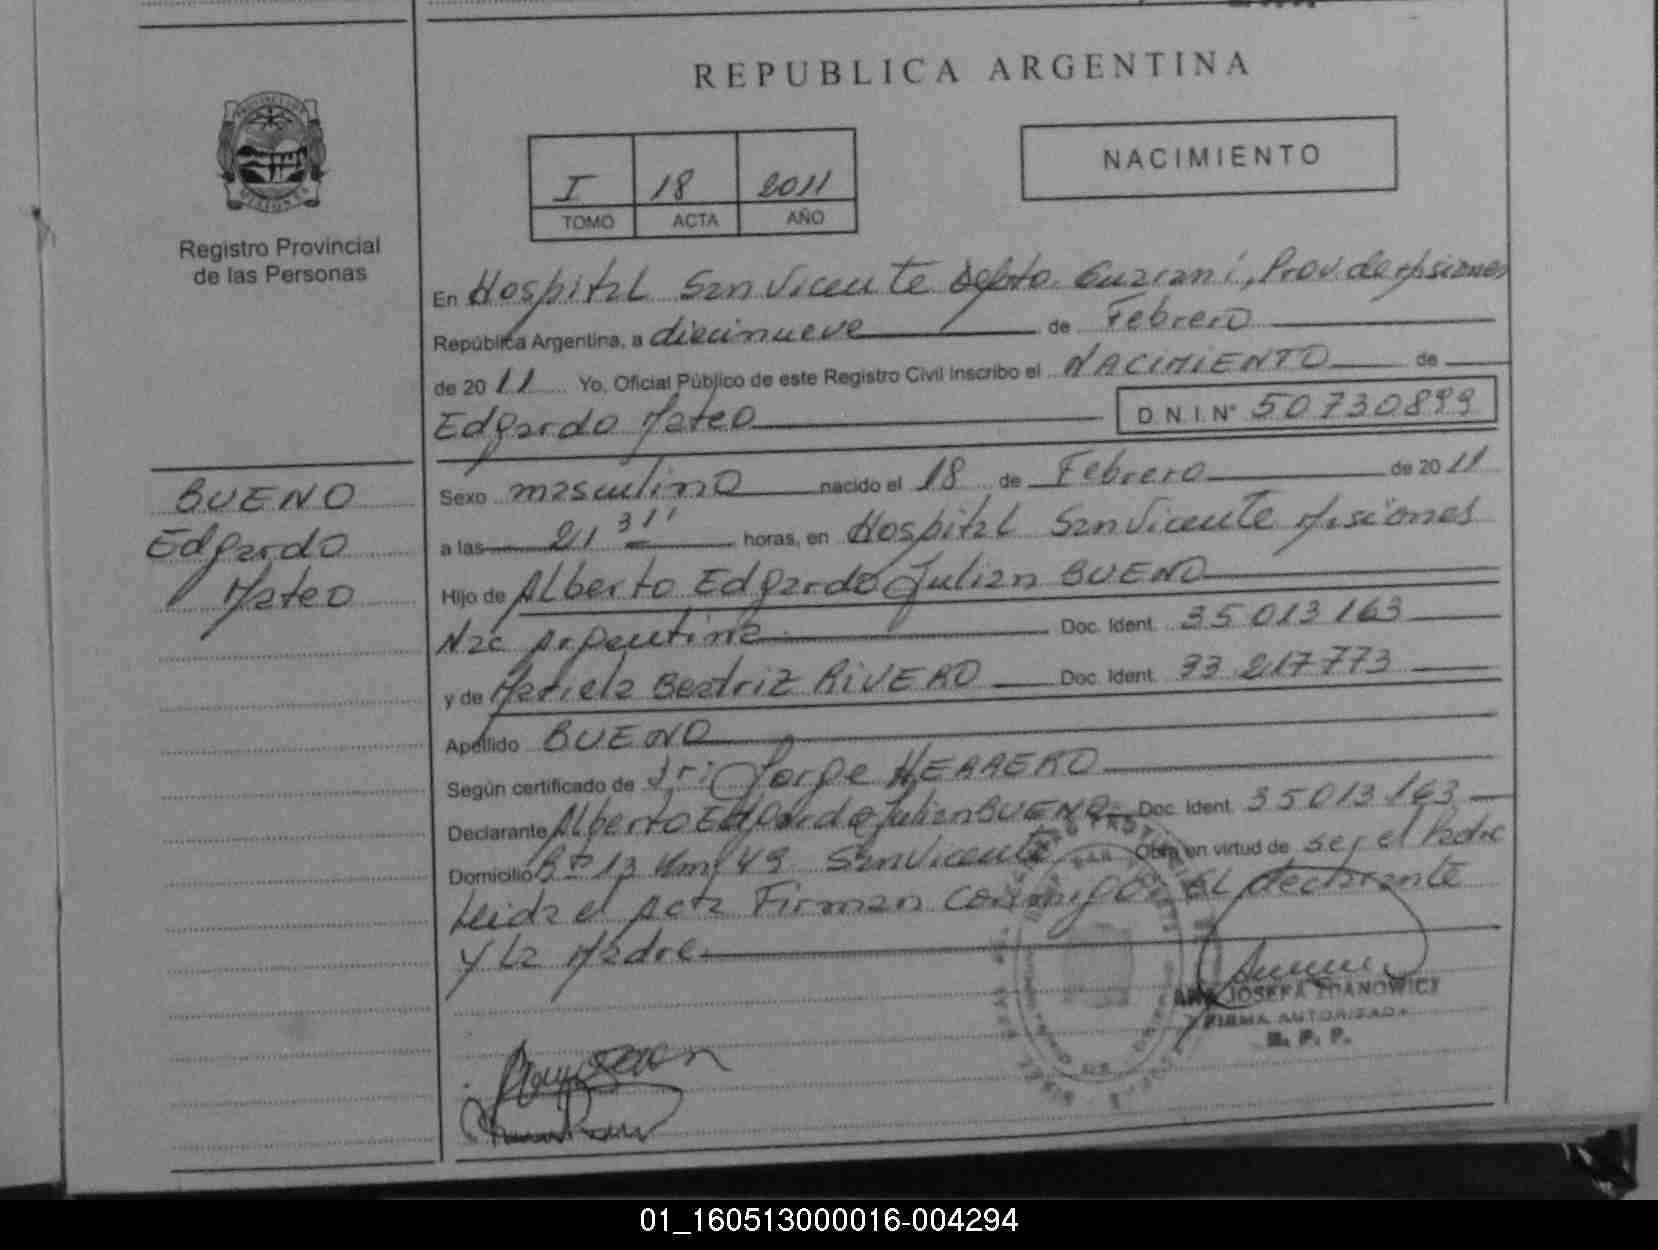 REPUBLICA ARGENTINA
PROVINCIA DE MISIONES
Registro Provincial
de las Personas
I 18 2011
TOMO ACTA AÑO
NACIMIENTO
En Hospital San Vicente Depto. Guarani, Prov. de Misiones
República Argentina, a diecinueve de Febrero
de 2011 Yo, Oficial Público de este Registro Civil Inscribo el NACIMIENTO de
Edgardo Mateo D.N.I. Nº 50730899
BUENO
Edgardo
Mateo
Sexo masculino nacido el 18 de Febrero de 2011
a las 21 31'' horas, en Hospital San Vicente Misiones
Hijo de Alberto Edgardo Julian BUENO
Nac Argentina Doc. Ident. 35 013 163
y de Mariela Beatriz RIVERO Doc. Ident. 33.217773
Apellido BUENO
Según certificado de Jorge HERRERO
Declarante Alberto Edgardo Julian BUENO Doc. Ident. 35013163
Domicilio Rta 13 Km 49 San Vicente Obra en virtud de ser el Padre
Leida el Acta Firman Conmigo El declarante
y La Madre
ANA JOSEFA ZDANOWICZ
FIRMA AUTORIZADA
R. P. P.
01_160513000016-004294